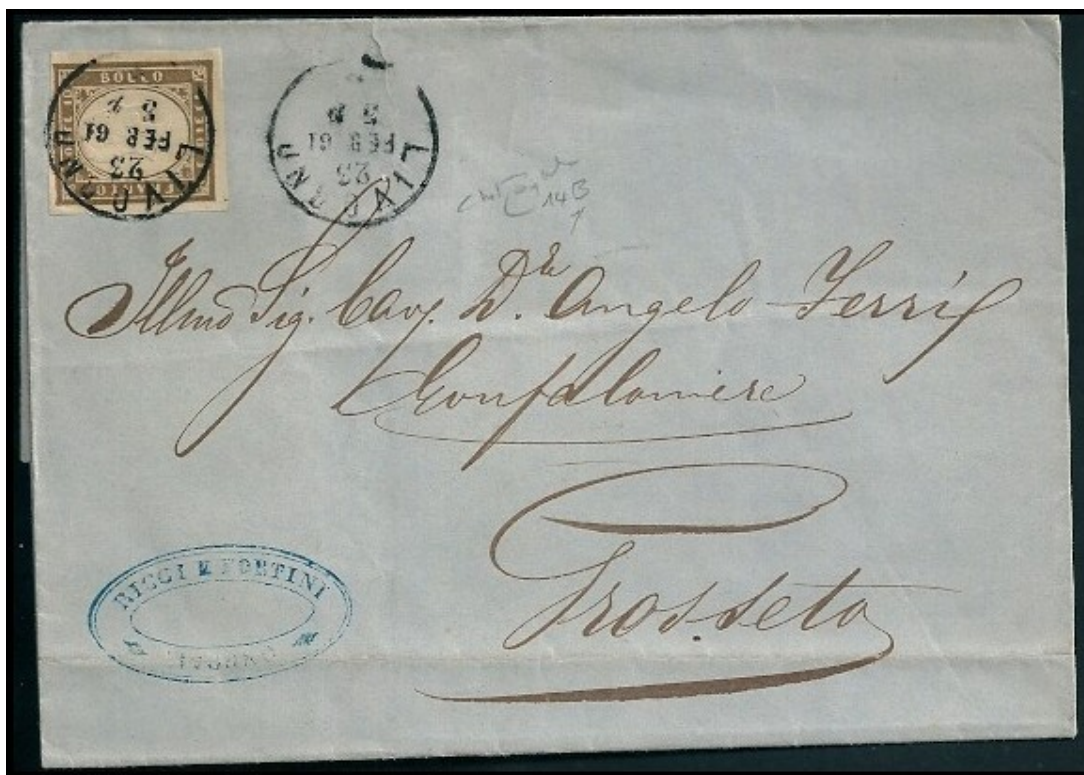 BOLLO
LIVORNO
23
FEB 61
3
LIVORNO
23
FEB 61
3
14B
Illmo Sig. Cav. Dr. Angelo Ferri
Gonfaloniere
Grosseto
RICCI E FORTINI
LIVORNO